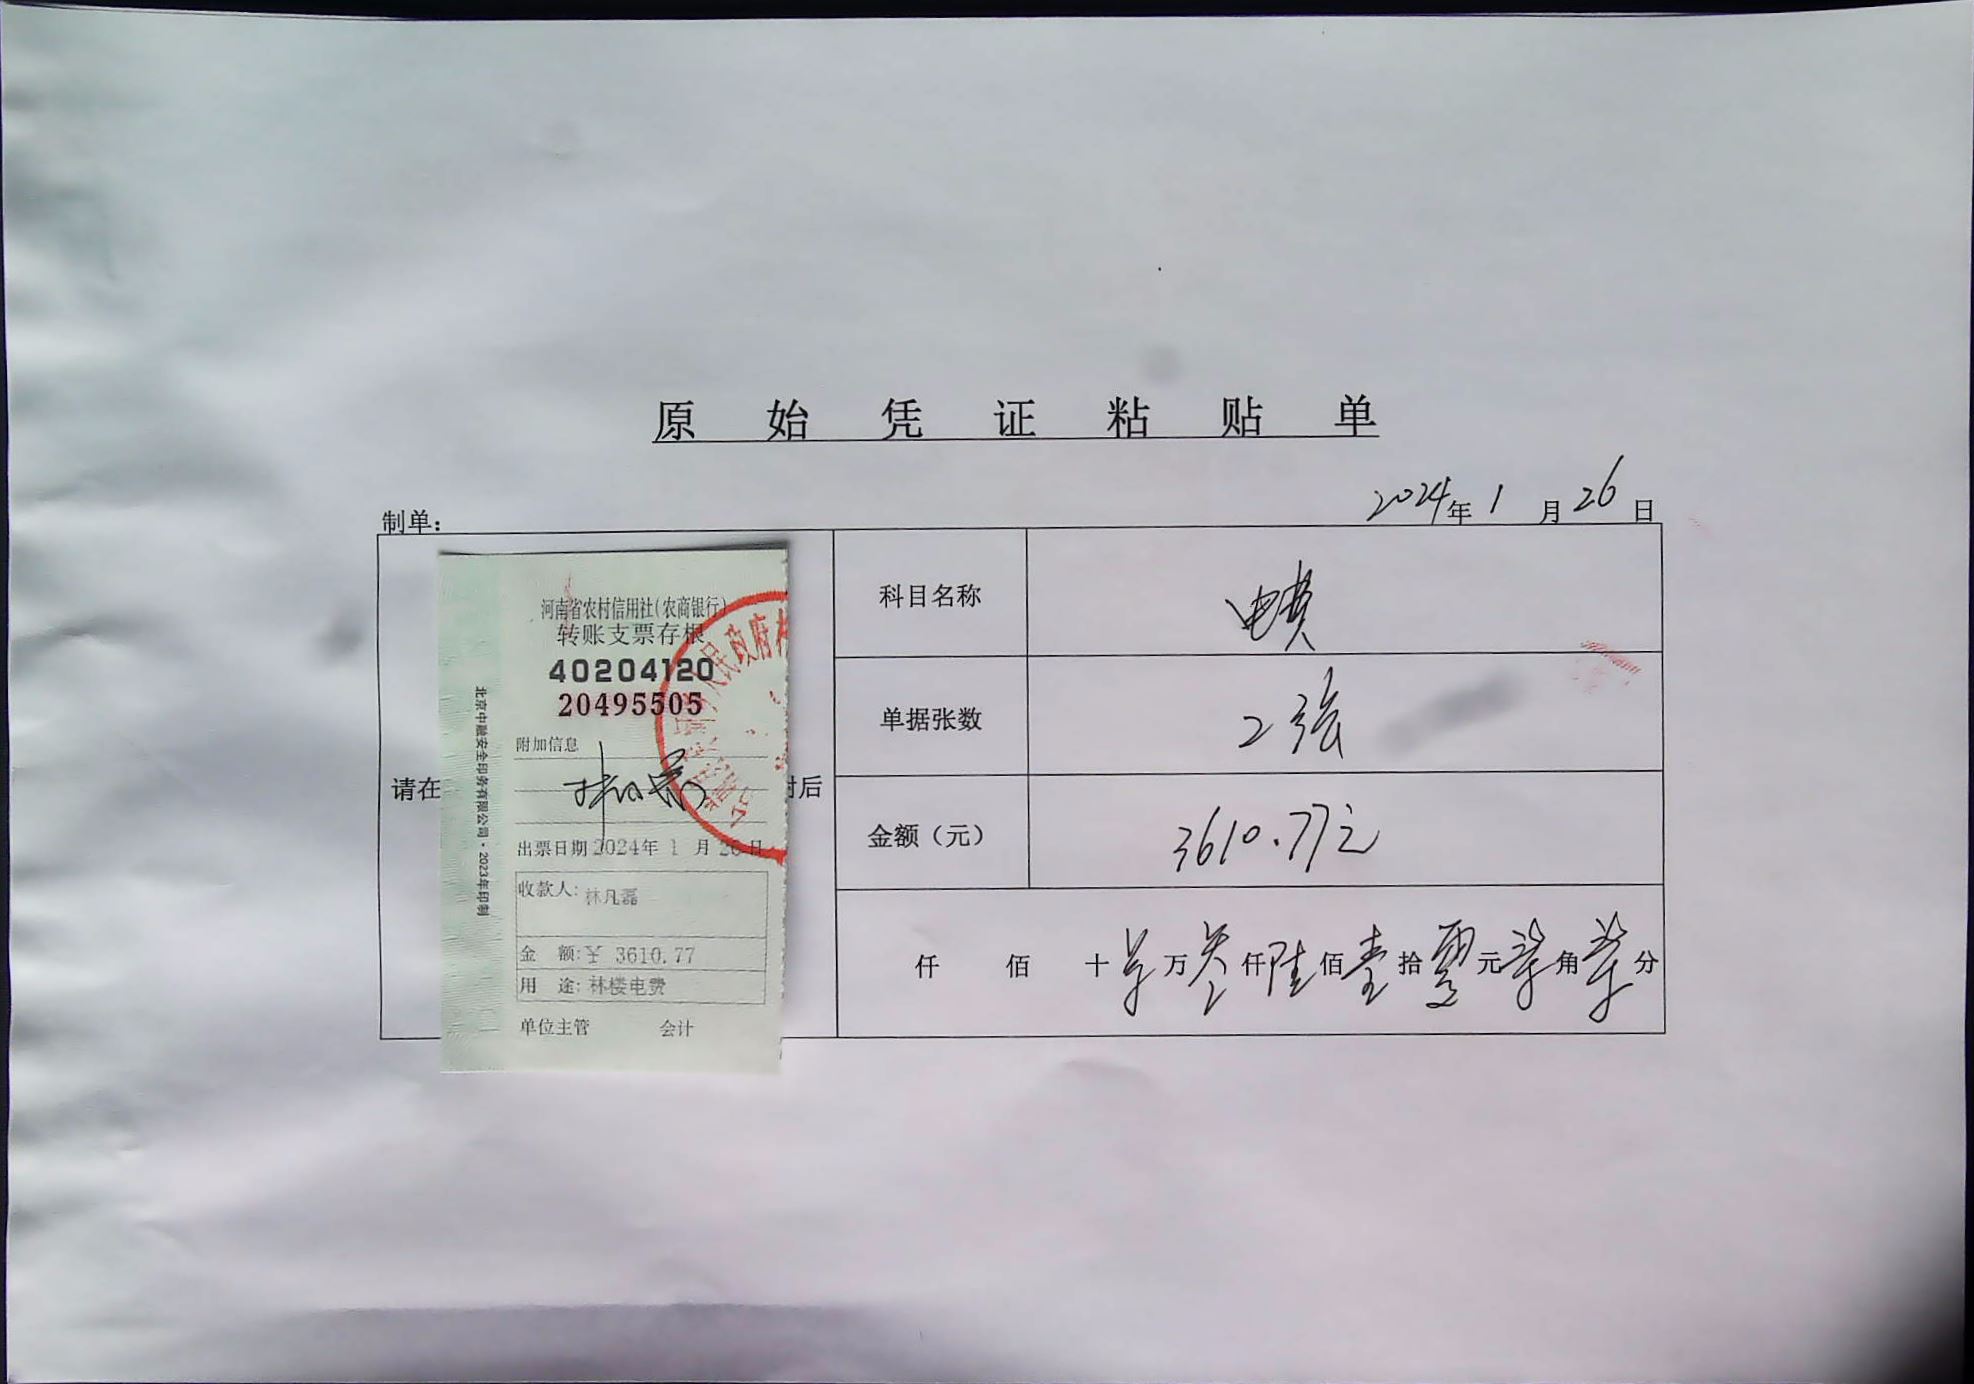 原始凭证粘贴单
2024年1月26日
制单：
请在
附后
河南省农村信用社(农商银行)
转账支票存根
40204120
20495505
附加信息
出票日期 2024年 1 月 26 日
收款人: 林凡磊
金 额: ¥ 3610.77
用 途: 林楼电费
单位主管 会计
北京中融安全印务有限公司·2023年印制
人民政府
科目名称 电费
单据张数 2张
金额（元） 3610.77元
仟 佰 十 万叁仟陆佰壹拾零元柒角柒分